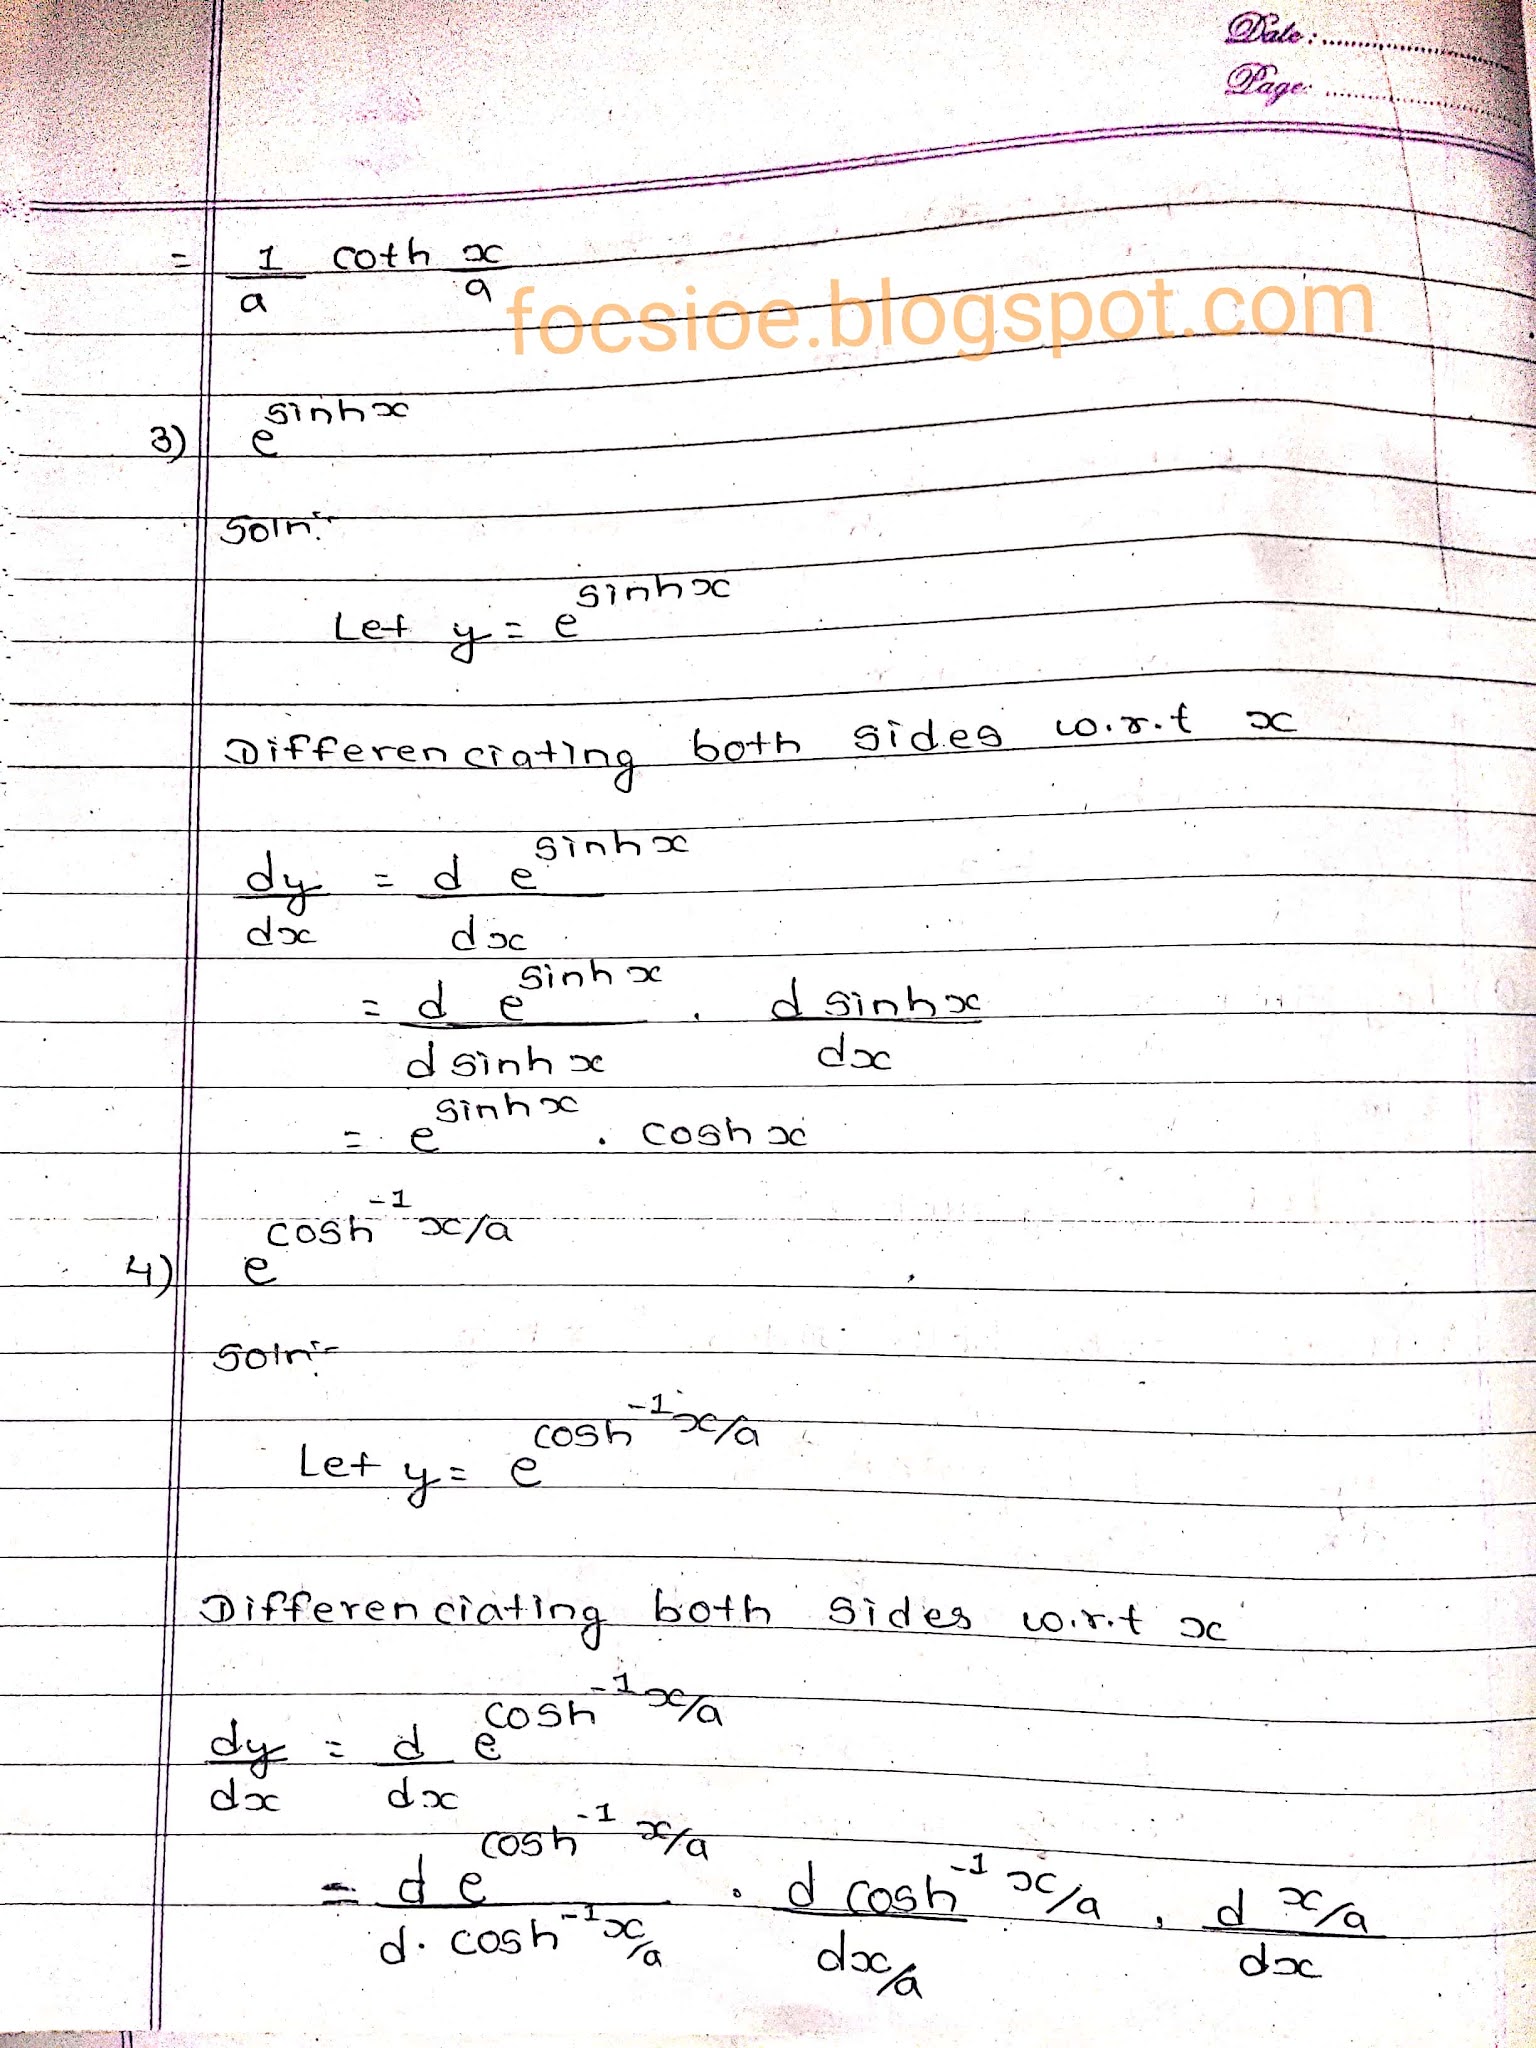 Date:
Page:
= 1/a coth x/a
focsioe.blogspot.com
3) e^sinhx
Soln:-
Let y = e^sinhx
Differenciating both sides w.r.t x
dy/dx = d e^sinhx/dx
= d e^sinhx/d sinhx . d sinhx/dx
= e^sinhx . coshx
4) e^cosh^-1 x/a
Soln:-
Let y = e^cosh^-1 x/a
Differenciating both sides w.r.t x
dy/dx = d/dx e^cosh^-1 x/a
= d e^cosh^-1 x/a/d. cosh^-1 x/a . d cosh^-1 x/a/dx/a . d x/a/dx